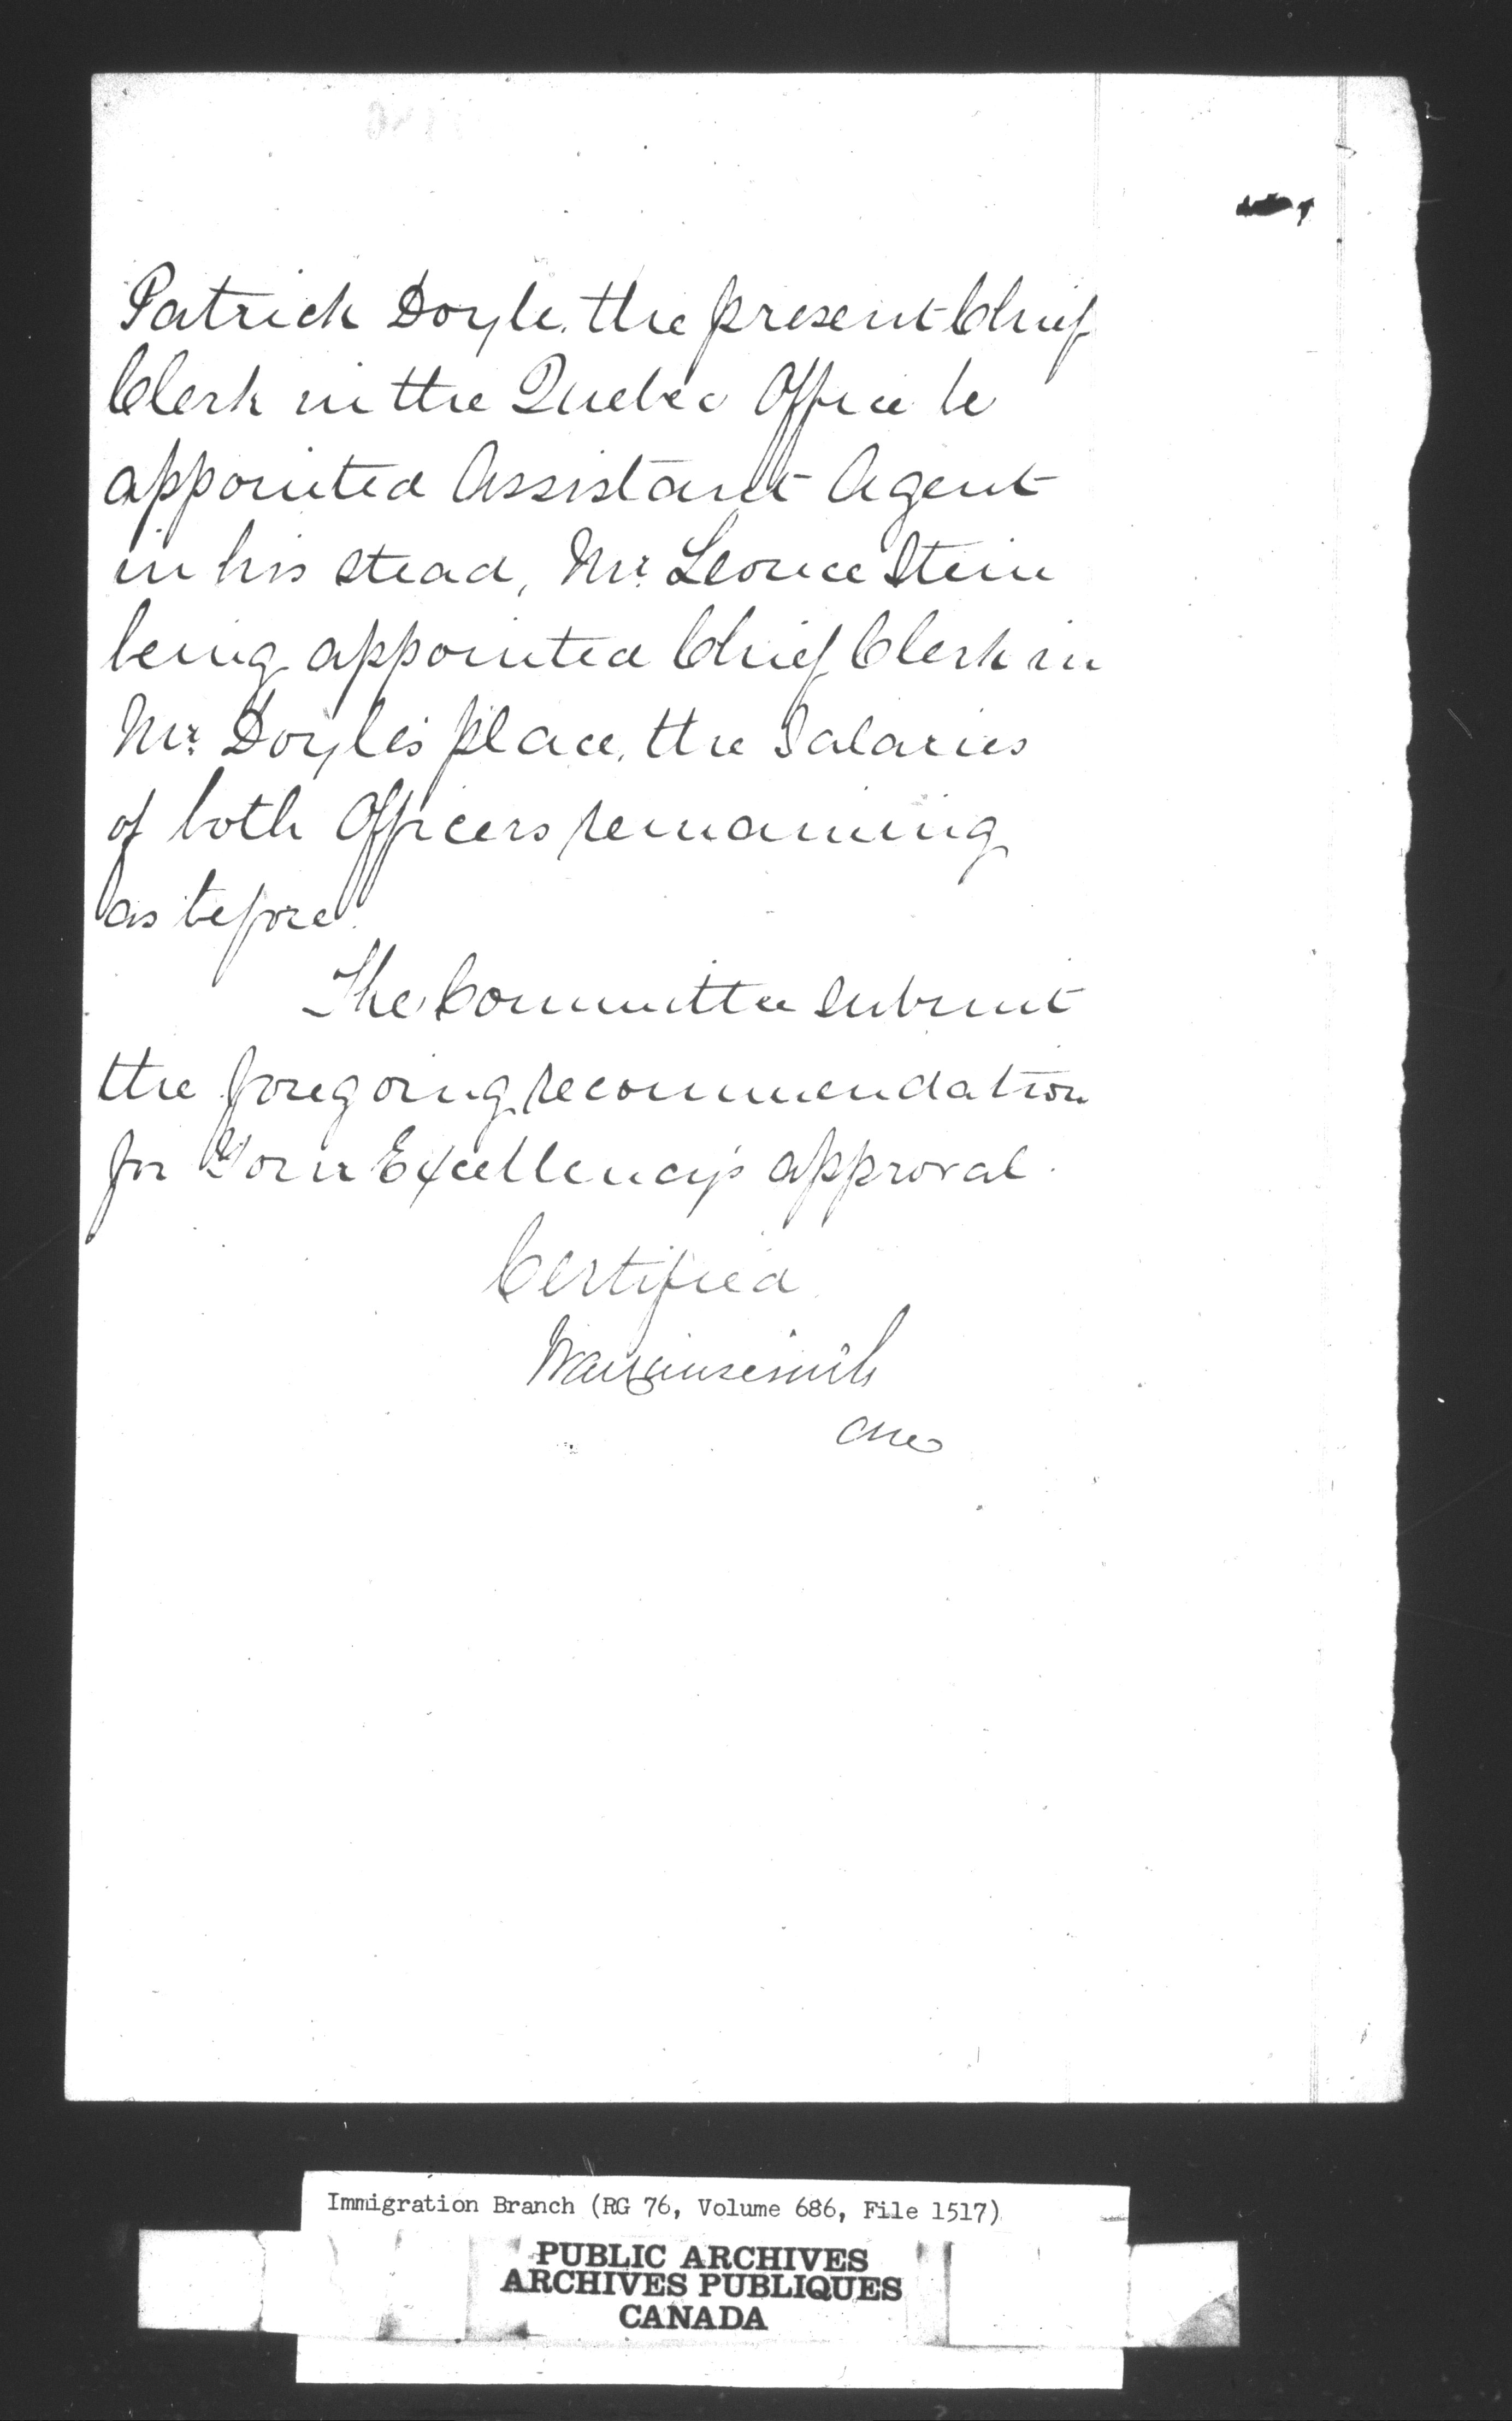 Patrick Doyle, the present Chief
Clerk in the Quebec Office be
appointed Assistant Agent
in his stead, Mr. Leonce Stein
being appointed Chief Clerk in
Mr. Doyle's place, the Salaries
of both Officers remaining
as before.
The Committee submit
the foregoing recommendation
for Your Excellency's approval.
Certified
Immigration Branch (RG 76, Volume 686, File 1517)
PUBLIC ARCHIVES
ARCHIVES PUBLIQUES
CANADA